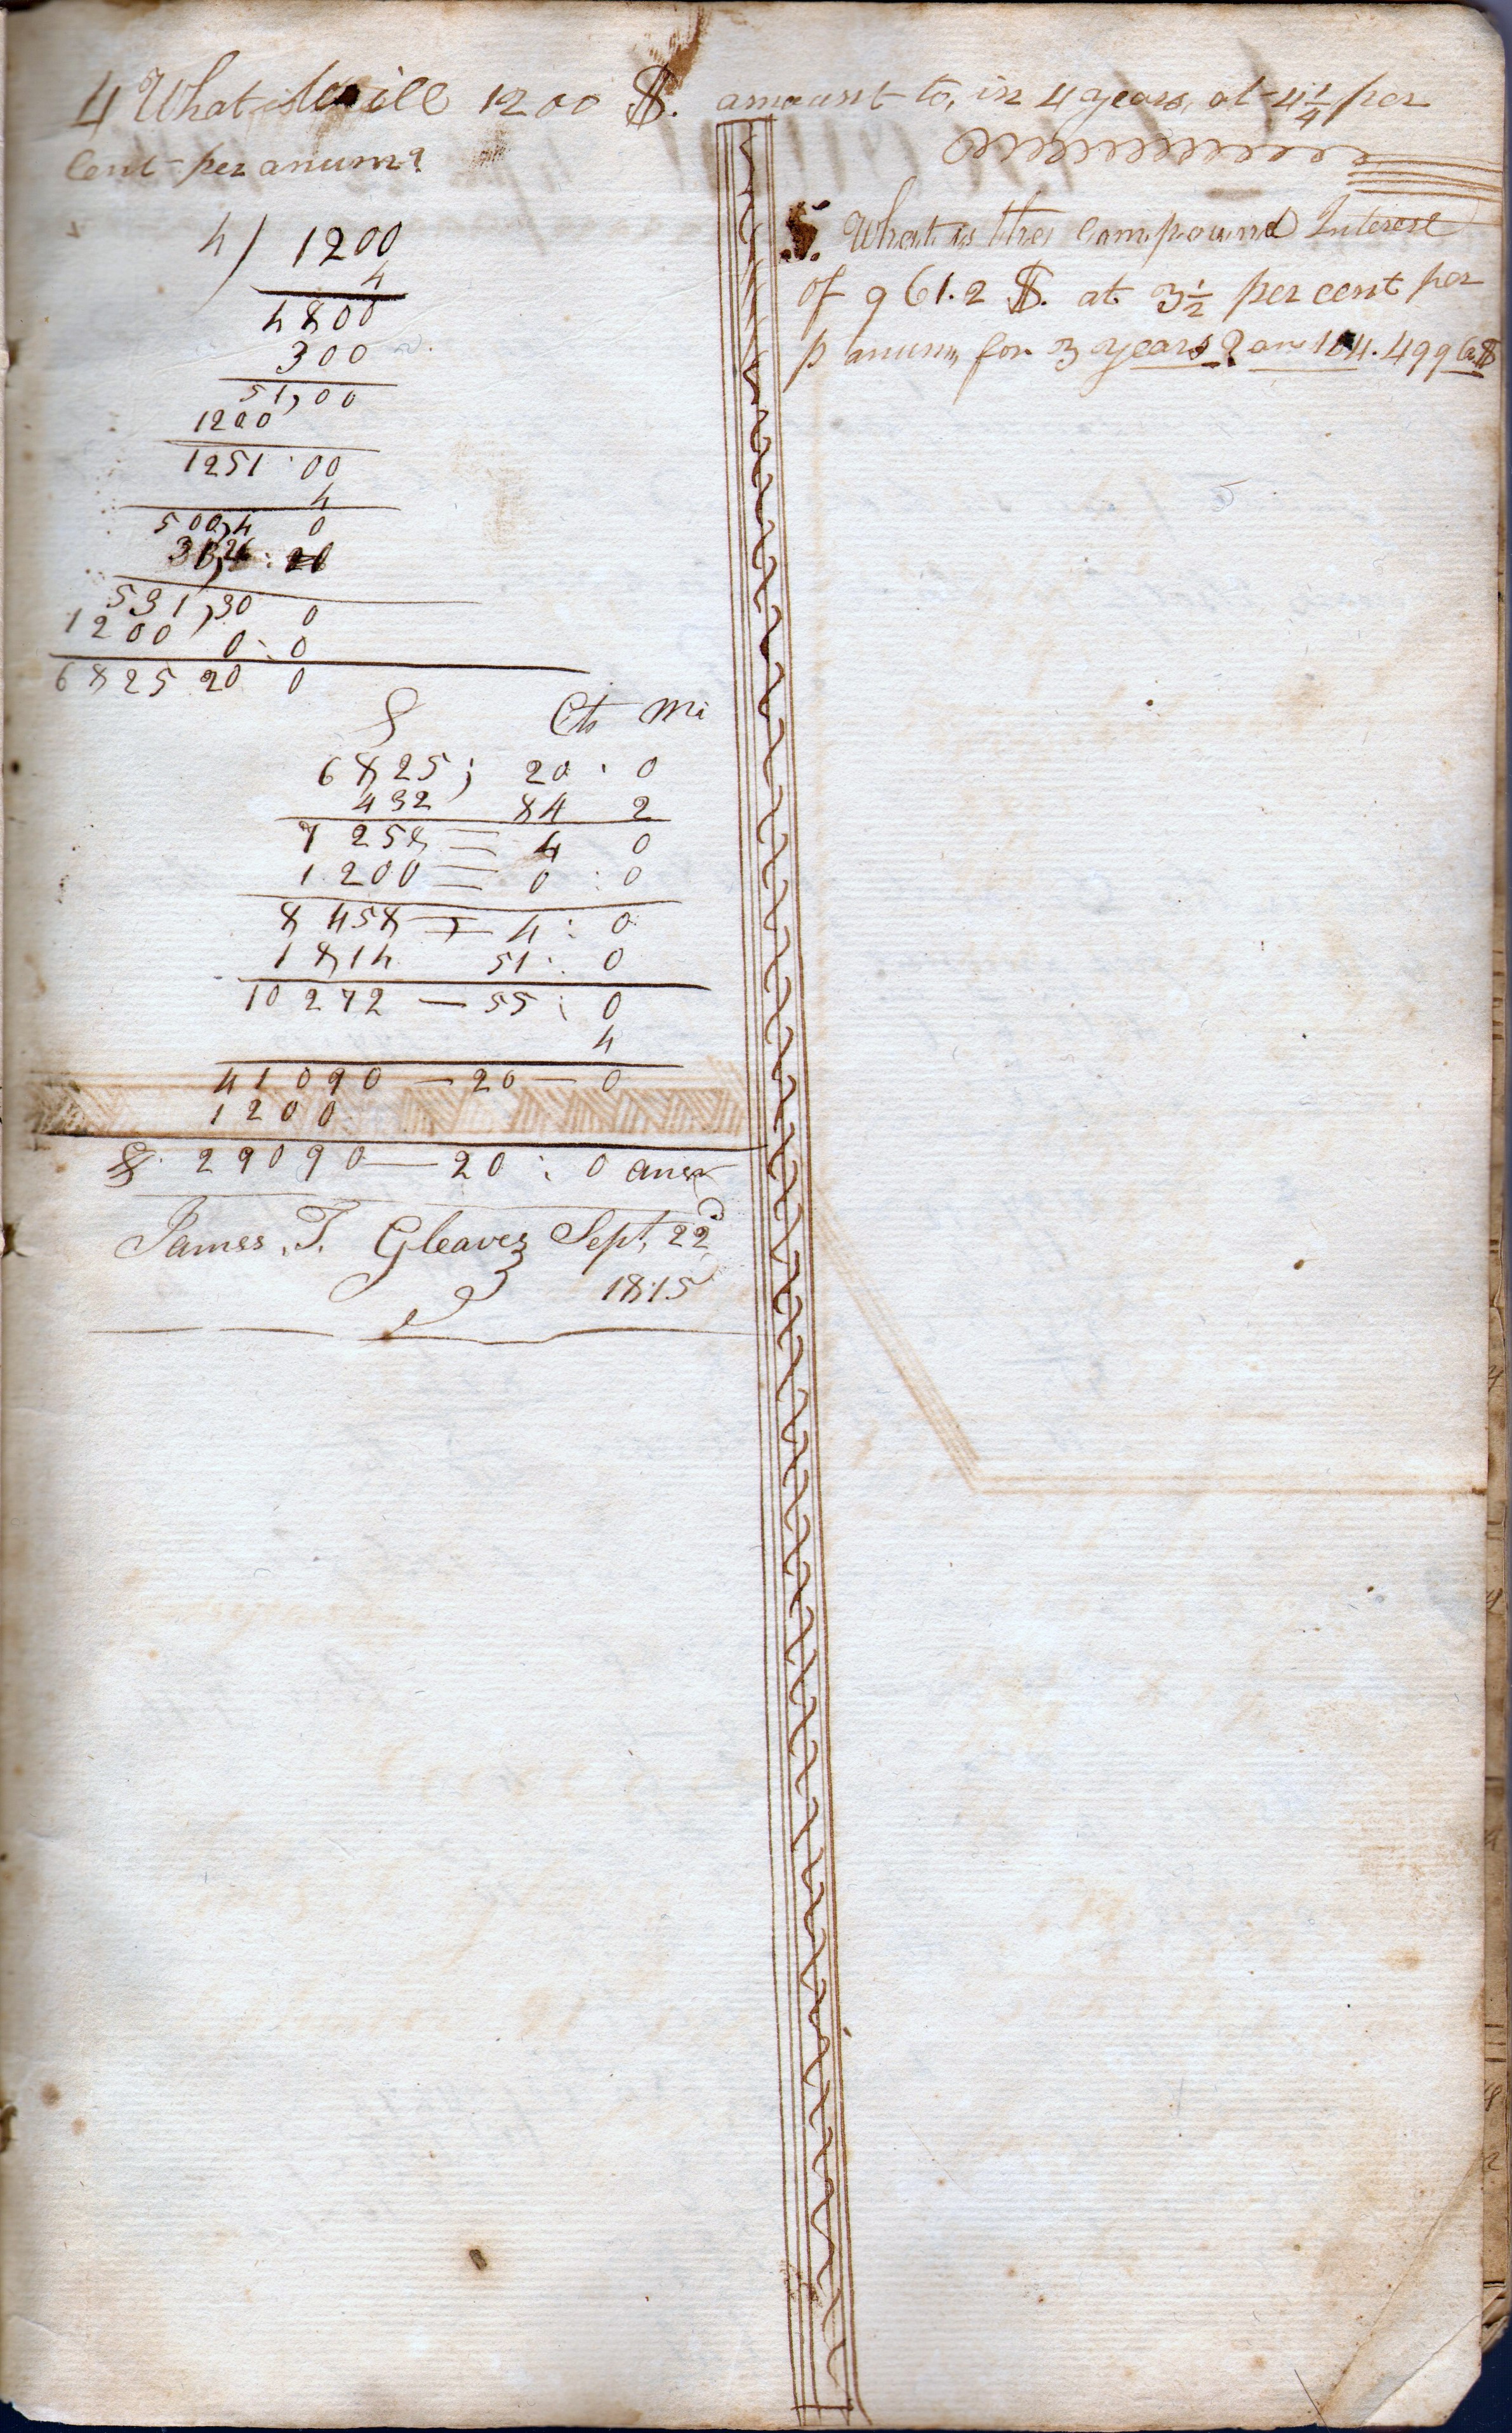 4 What will 1200 $. amount to, in 4 years, at 4 1/4 per
Cent per anum?
4) 1200
4
4800
300
51,00
1200
1251.00
4
500,4 0
531,30 0
1200 0:0
6825 20 0
$ Cts Mi
6825; 20 . 0
432 84 2
7258 = 4 0
1200 = 0 : 0
8458 = 4 : 0
1814 51 : 0
10272 — 55 : 0
4
41090 — 20 — 0
1200
$. 29090 — 20 : 0 answ
James. T. Gleaves Sept, 22d
1815
5. What is the Compound Interest
of 961.2 $. at 3 1/2 per cent per
p anum, for 3 years? ans 104.4996.$